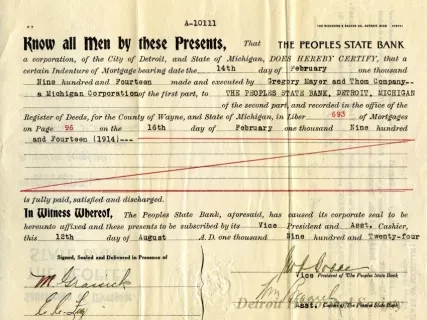 A-10111
Know all Men by these Presents, That THE PEOPLES STATE BANK
a corporation, of the City of Detroit, and State of Michigan, DOES HEREBY CERTIFY, that a
certain Indenture of Mortgage bearing date the 14th day of February one thousand
Nine hundred and Fourteen made and executed by Gregory Mayer and Thom Company--
a Michigan Corporation of the first part, to THE PEOPLES STATE BANK, DETROIT, MICHIGAN
of the second part, and recorded in the office of the
Register of Deeds, for the County of Wayne, and State of Michigan, in Liber 693 of Mortgages
on Page 96 on the 16th day of February one thousand Nine hundred
and Fourteen (1914)---
is fully paid, satisfied and discharged.
In Witness Whereof, The Peoples State Bank, aforesaid, has caused its corporate seal to be
hereunto affixed and these presents to be subscribed by its Vice President and Asst. Cashier,
this 12th day of August A. D. one thousand Nine hundred and Twenty-four
Signed, Sealed and Delivered in Presence of
Vice President of The Peoples State Bank
Detroit Historical Society
Asst. Cashier, The Peoples State Bank